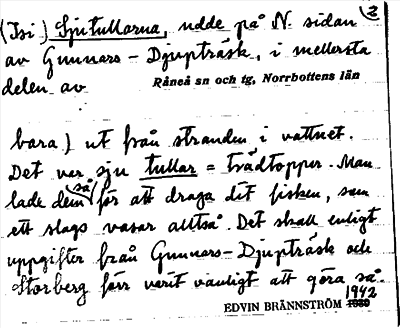 (Isi) Sjutullarna, udde på N. sidan 2
av Gunnars-Djupträsk, i mellersta
delen av Råneå sn och tg, Norrbottens län
bara) ut från stranden i vattnet.
Det var sju tullar = trädtoppar. Man
lade dem så för att draga dit fisken, som
ett slags vasar alltså. Det skall enligt
uppgifter från Gunnars-Djupträsk och
Storberg förr varit vanligt att göra så.
EDVIN BRÄNNSTRÖM 1942